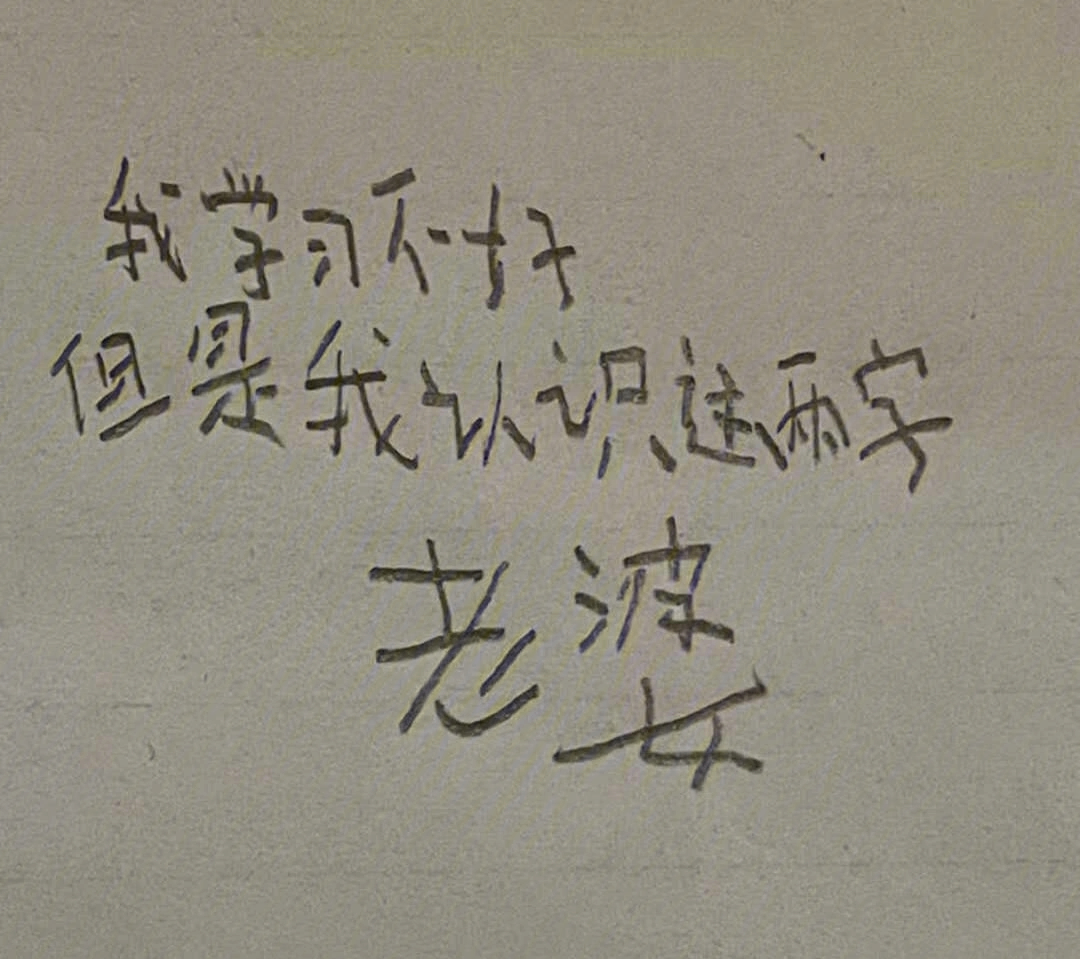 我学习不好
但是我认识这两字
老婆